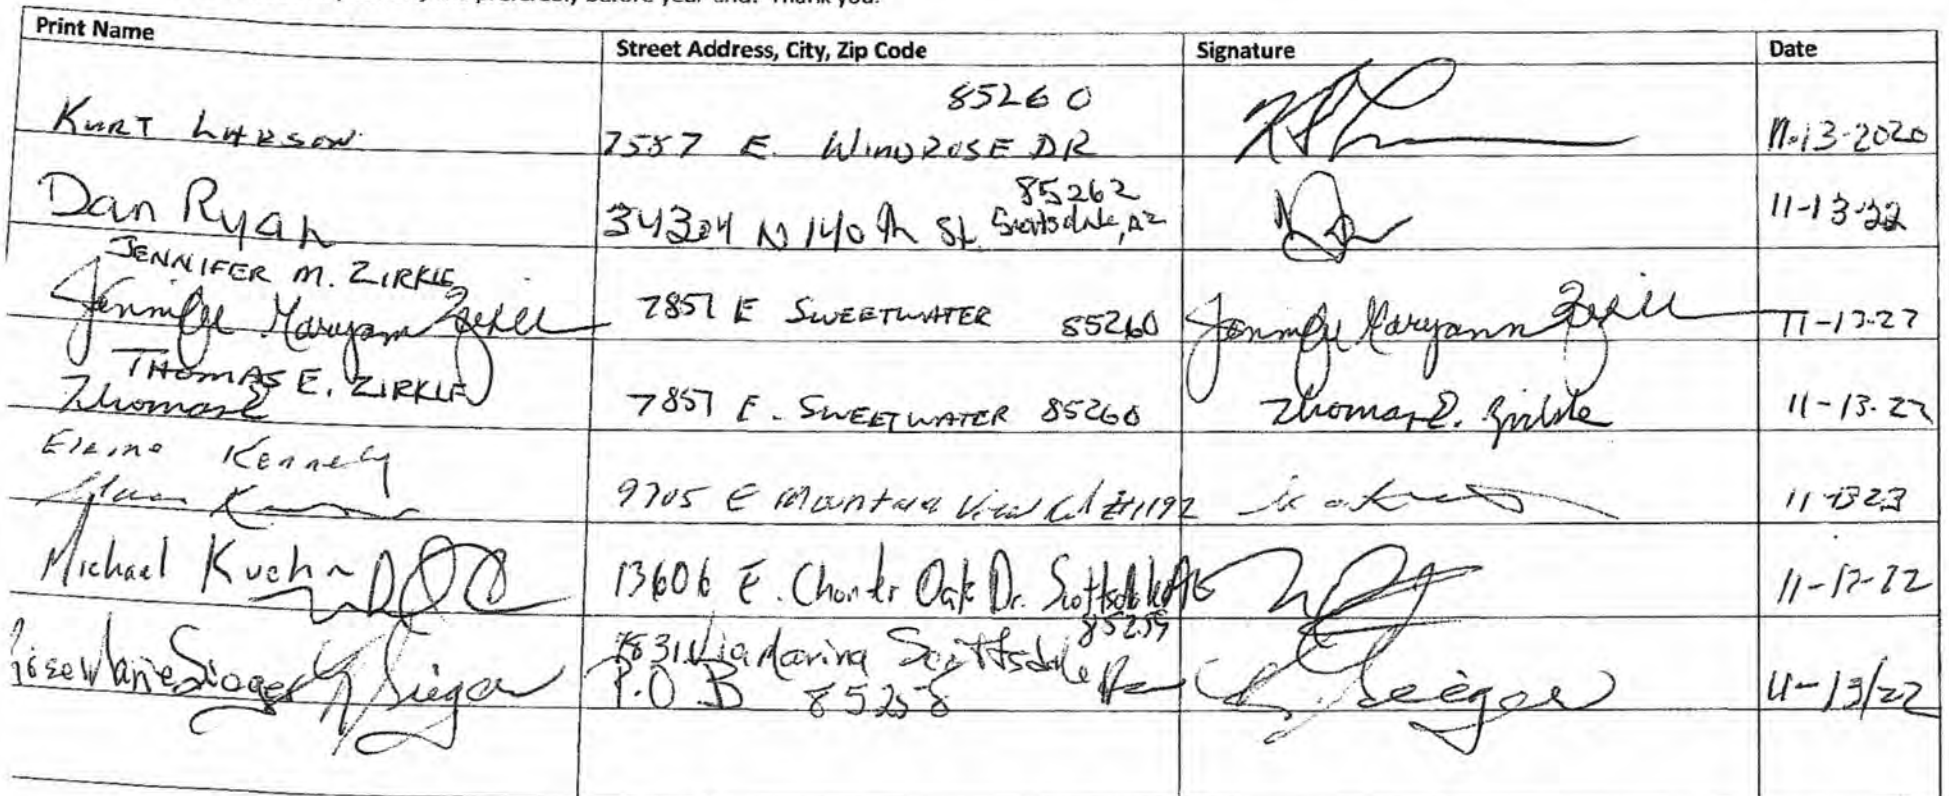 before year end. Thank you.
Print Name Street Address, City, Zip Code Signature Date
85260
KURT LARSON 7587 E. WINDROSE DR 11-13-2020
85262
Dan Ryan 34324 N 140th St. Scottsdale, AZ 11-13-22
JENNIFER M. ZIRKLE
Jennifer Maryann Zirkle 7857 E SWEETWATER 85260 Jennifer Maryann Zirkle 11-13-22
THOMAS E. ZIRKLE
Thomas E 7857 E. SWEETWATER 85260 Thomas E. Zirkle 11-13-22
Elaine Kennedy
9705 E Mountain View Rd #1192 11-1323
Michael Kuehn 13606 E. Charter Oak Dr. Scottsdale AZ 11-13-22
85259
7831 Via Marina Scottsdale
Rose Marie Sieger Sieger P.O.B 85258 Sieger 11-13/22